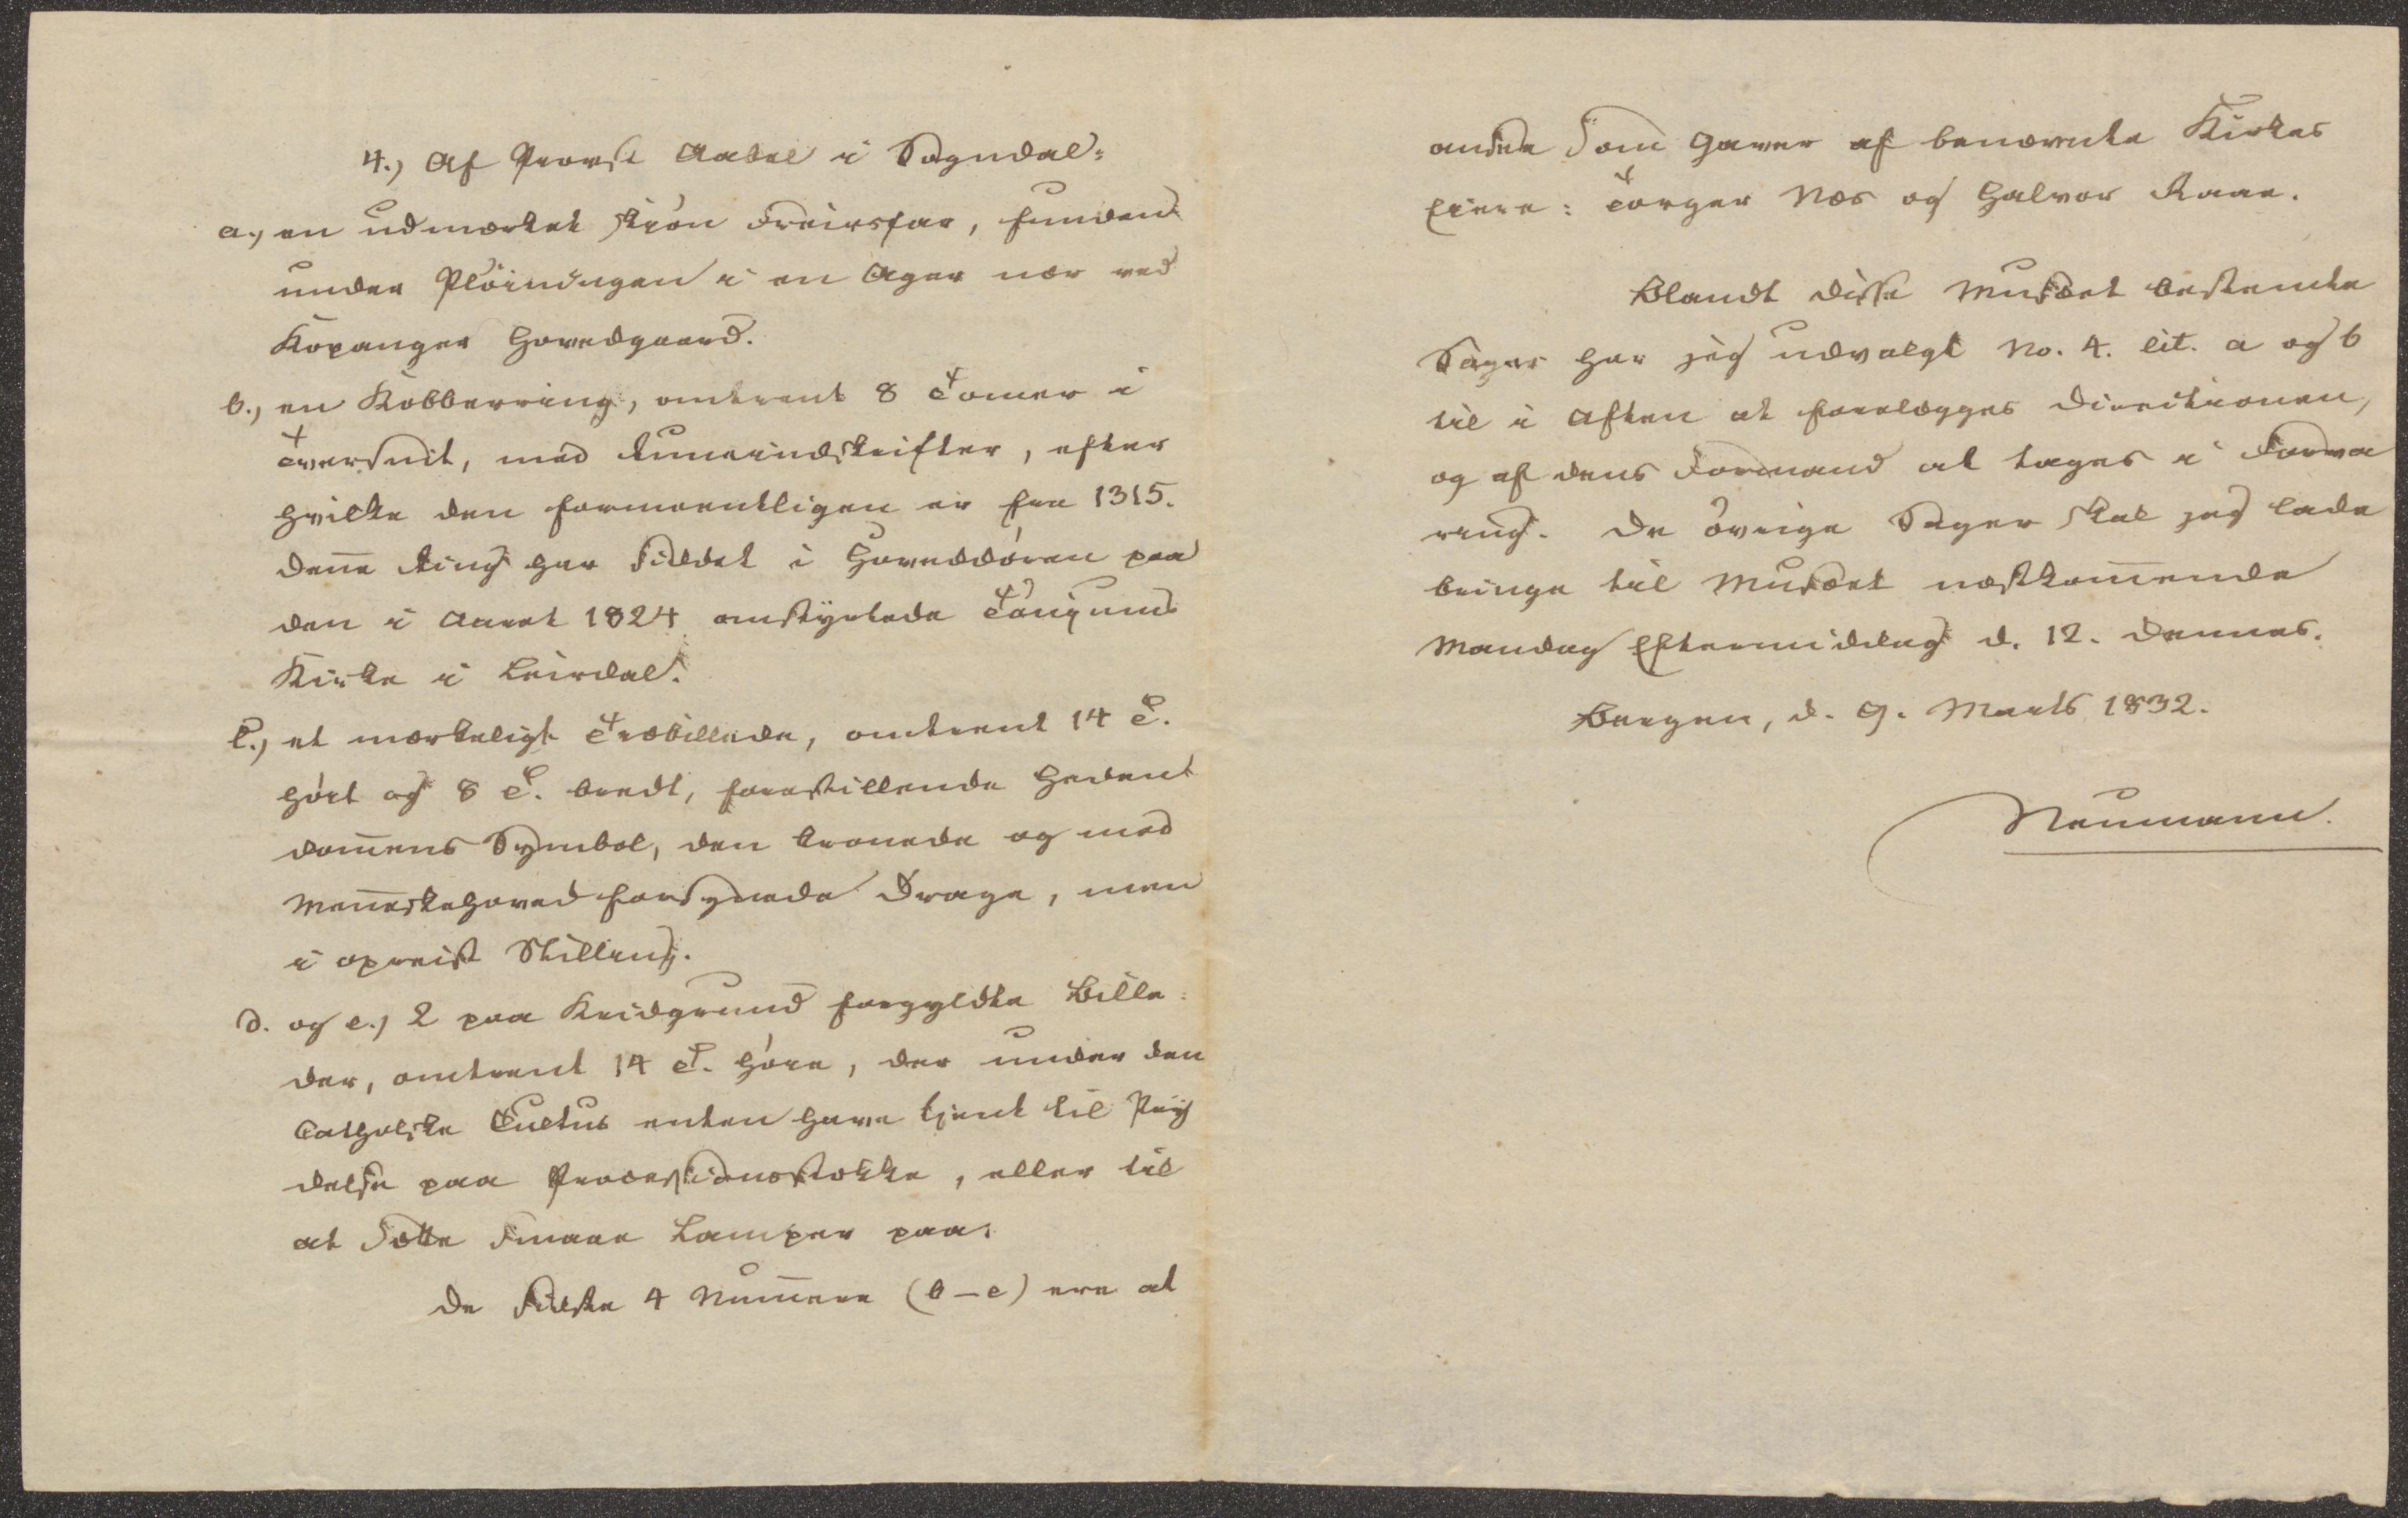 4.) Af Provst Aabel i Sogndal:
a.) en udmærket skjön Freirsfar, funden
under Plöiningen i en Ager nær ved
Kopanger Hovedgaard.
b.) en Kobberring, omtrent 8 Tomer i
Tversnit, med Runeindskrifter, efter
hvilke den formeentligen er fra 1315.
Deñe Ring har siddet i Hoveddören paa
den i Aaret 1824 omstyrtede Tönjums
Kirke i Leirdal.
c.) et mærkeligt Træbillede, omtrent 14 T.
höit og 8 T. bredt, forestillende Heden
dom̄ens Symbol, den kronede og med
Meñeskehoved forsynede Drage, men
i opreist Stilling.
d. og e.) 2 paa Kridgrund forgyldte Bille=
der, omtrent 14 T. höie, der under den
catholske Cultus enten have tjent til Pryd
delse paa Processionsstokke, eller til
at sætte smaae Lamper paa.
De sidste 4 Num̄ere (b–e) ere at
ansee som Gaver af benævnte Kirkes
Eiere: Torger Næs og Halvor Raae.
Blandt disse Musæet bestemte
Sager har jeg udvalgt No. 4. lit. a og b
til i Aften at forelægges Directionen,
og af dens Formand at tages i Forva
ring. De övrige Sager skal jeg lade
bringe til Musæet næstkom̄ende
Mandag Eftermiddag d. 12. dennes.
Bergen, d. 9. Marts 1832.
Neumann.